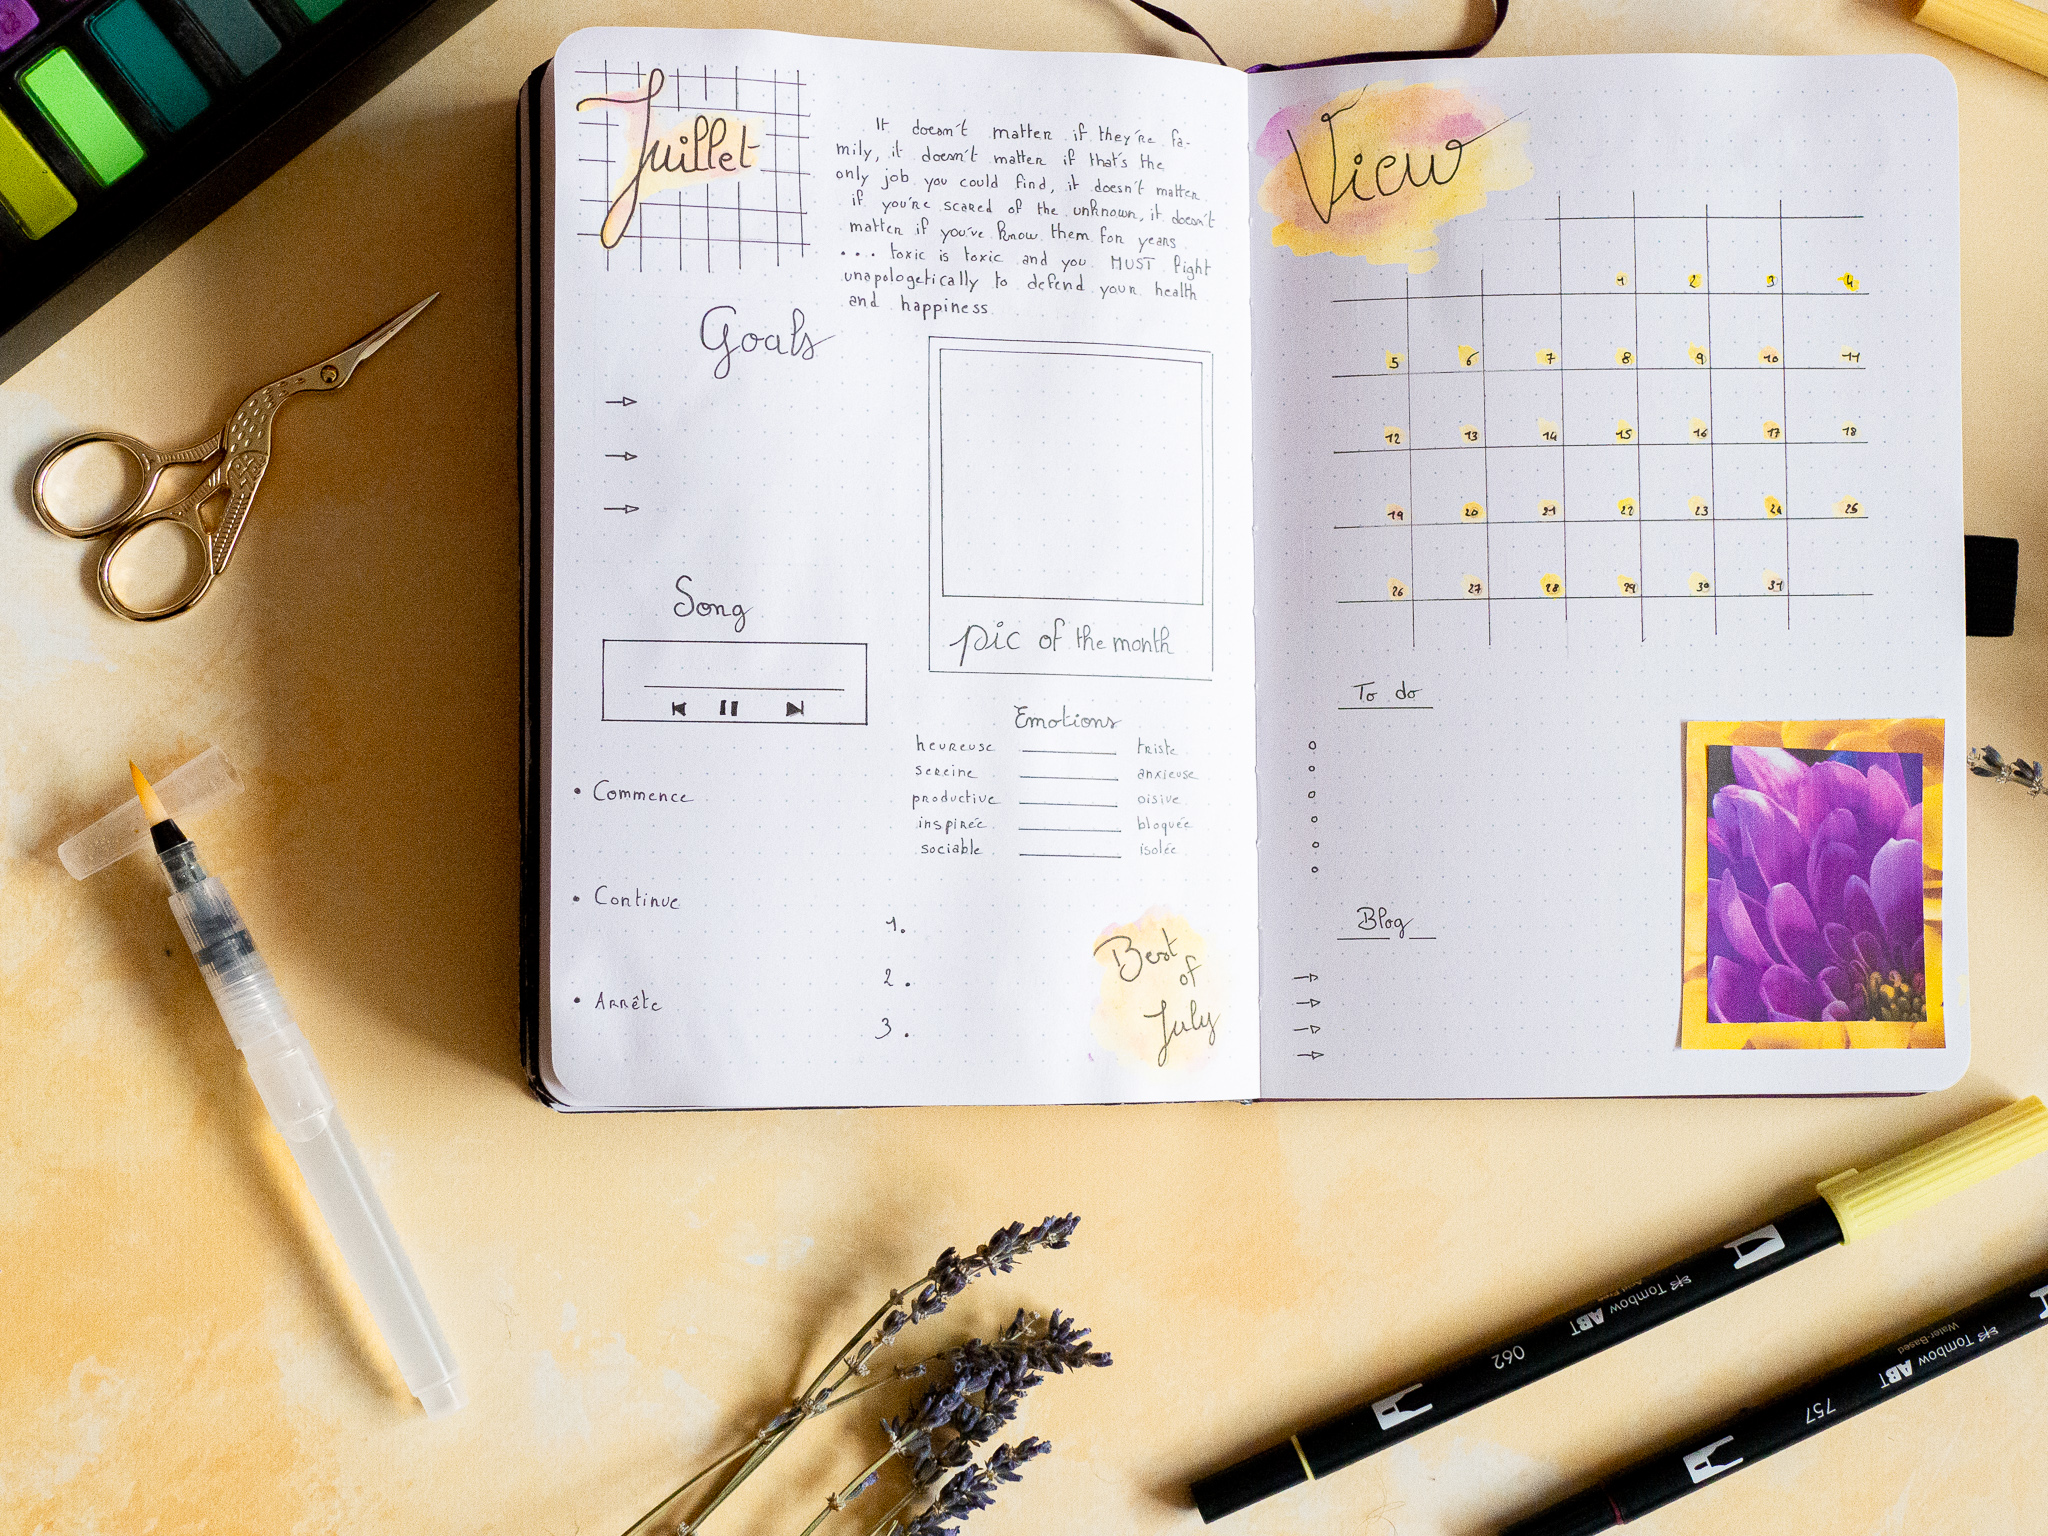 Juillet
It doesn't matter if they're fa-
mily, it doesn't matter if that's the
only job you could find, it doesn't matter
if you're scared of the unknown, it doesn't
matter if you've know them for years
.... toxic is toxic and you MUST fight
unapologetically to defend your health
and happiness.
Goals
Song
pic of the month
Emotions
heureuse triste
sereine anxieuse
productive oisive
inspirée bloquée
sociable isolée
• Commence
• Continue
• Arrête
1.
2.
3.
Best
of
July
View
1 2 3 4
5 6 7 8 9 10 11
12 13 14 15 16 17 18
19 20 21 22 23 24 25
26 27 28 29 30 31
To do
Blog
062 ABT Tombow
757 ABT Tombow
Water-Based